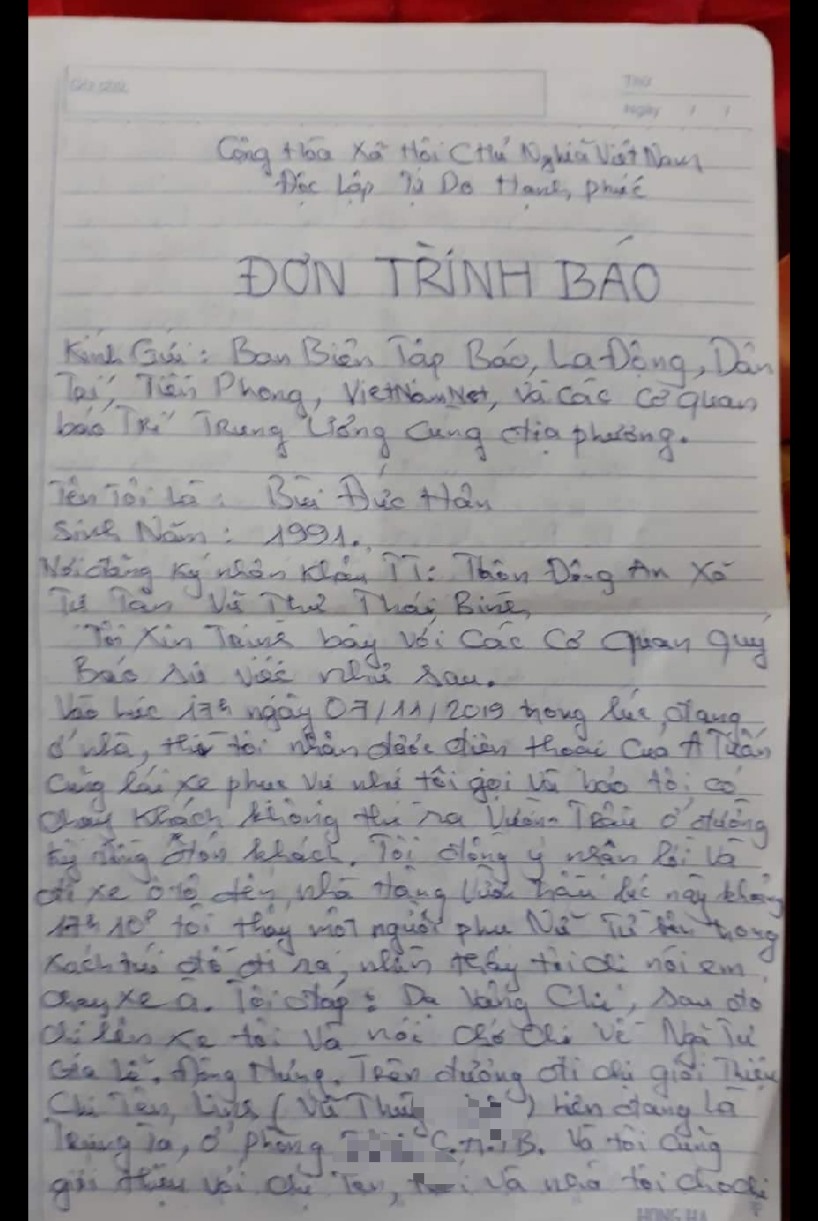 Thứ
Ngày / /
Cộng Hòa Xã Hội Chủ Nghĩa Việt Nam
Độc Lập Tự Do Hạnh phúc
ĐƠN TRÌNH BÁO
Kính Gửi: Ban Biên Tập Báo, Lao Động, Dân
Trí, Tiền Phong, VietNamNet, và các cơ quan
báo Trí Trung Ương cùng địa phương.
Tên Tôi Là: Bùi Đức Hân
Sinh Năm: 1991.
Nơi đăng ký nhân khẩu TT: Thôn Đông An Xã
Tự Tân Vũ Thư Thái Bình
Tôi Xin Trình bày với các Cơ Quan Quý
Báo sự việc như sau.
Vào lúc 17h ngày 07/11/2019 trong lúc đang
ở nhà, thì tôi nhận được điện thoại của A Tuấn
cũng lái xe phục vụ như tôi gọi và báo tôi có
chạy khách không thì ra Vườn Trâu ở đường
Kỳ Đồng đón khách. Tôi đồng ý nhận lời và
đi xe ô tô đến, nhà hàng lúc này khoảng
17h 10p tôi thấy một người phụ Nữ Từ bên trong
xách túi đồ đi ra, nhận thấy tôi chị nói em
chạy xe à. Tôi đáp: Dạ Vâng Chị, sau đó
chị lên xe tôi và nói chở chị về Ngã Tư
Gia Lễ, Đông Hưng. Trên đường đi chị giới Thiệu
Chị Tên, (Vũ Thúy ) hiện đang là
Trung Tá, ở phòng C.A.T.B. Và tôi cũng
giới thiệu với chị Tên, và nhà tôi cho chị
HONG HA